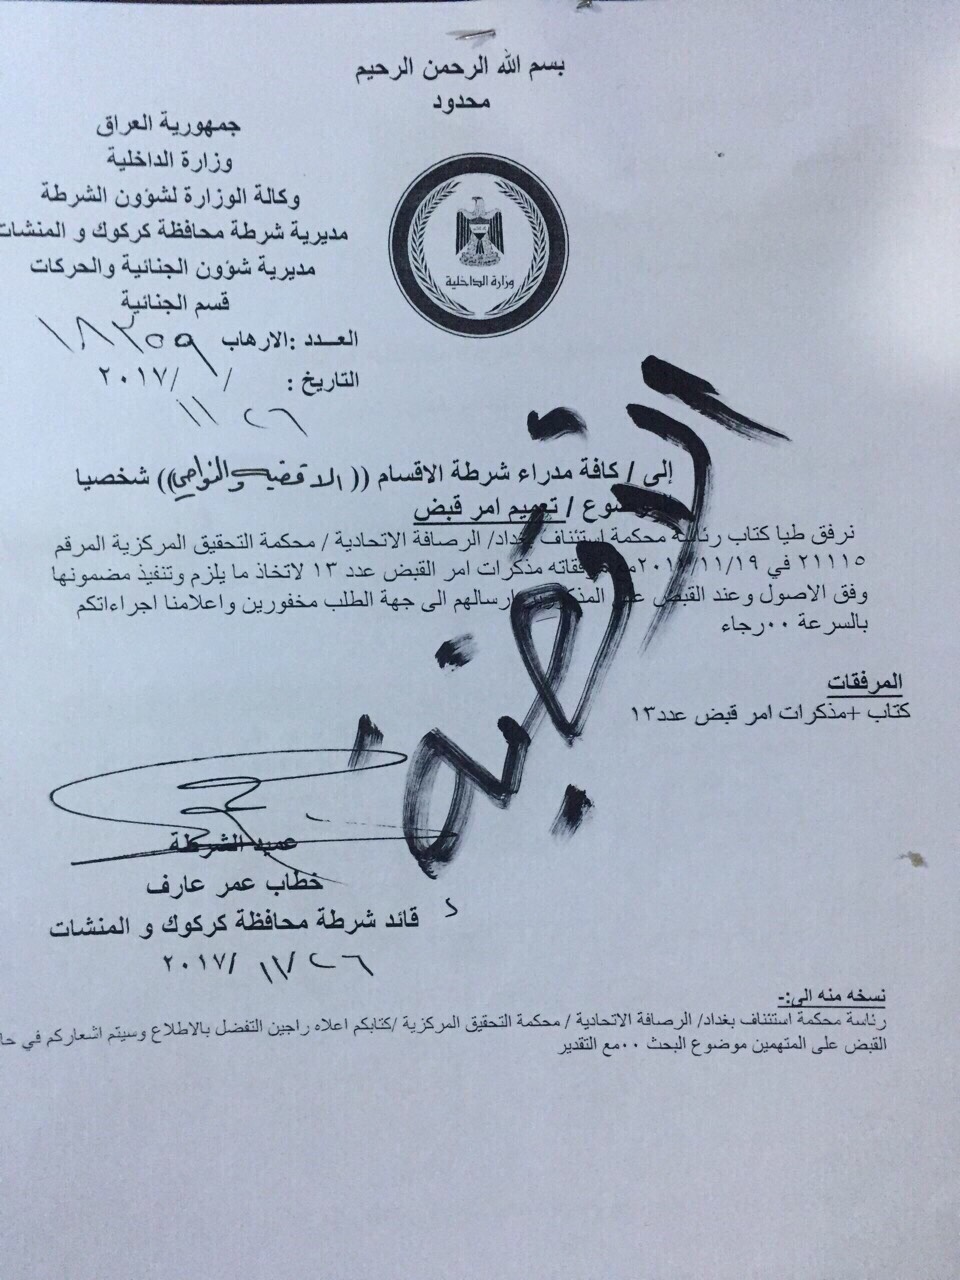 بسم الله الرحمن الرحيم
محدود
جمهورية العراق
وزارة الداخلية
وكالة الوزارة لشؤون الشرطة
مديرية شرطة محافظة كركوك و المنشات
مديرية شؤون الجنائية والحركات
قسم الجنائية
العـــدد :الارهاب ١٨٣٥٩
التاريخ : ٢٦ / ١١ /٢٠١٧
وزارة الداخلية
إلى / كافة مدراء شرطة الاقسام ((الاقضية والنواحي)) شخصيا
الموضوع / تعميم امر قبض
نرفق طيا كتاب رئاسة محكمة استئناف بغداد/ الرصافة الاتحادية / محكمة التحقيق المركزية المرقم
٢١١١٥ في ٢٠١٧/١١/١٩ مذكرات امر القبض عدد ١٣ لاتخاذ ما يلزم وتنفيذ مضمونها
وفق الاصول وعند القبض على ارسالهم الى جهة الطلب مخفورين واعلامنا اجراءاتكم
بالسرعة ٠٠رجاء
المرفقات
كتاب +مذكرات امر قبض عدد١٣
عميد الشرطة
خطاب عمر عارف
قائد شرطة محافظة كركوك و المنشات
٢٦ /١١ /٢٠١٧
نسخه منه الى:-
رئاسة محكمة استئناف بغداد/ الرصافة الاتحادية / محكمة التحقيق المركزية /كتابكم اعلاه راجين التفضل بالاطلاع وسيتم اشعاركم في حا
القبض على المتهمين موضوع البحث ٠٠مع التقدير